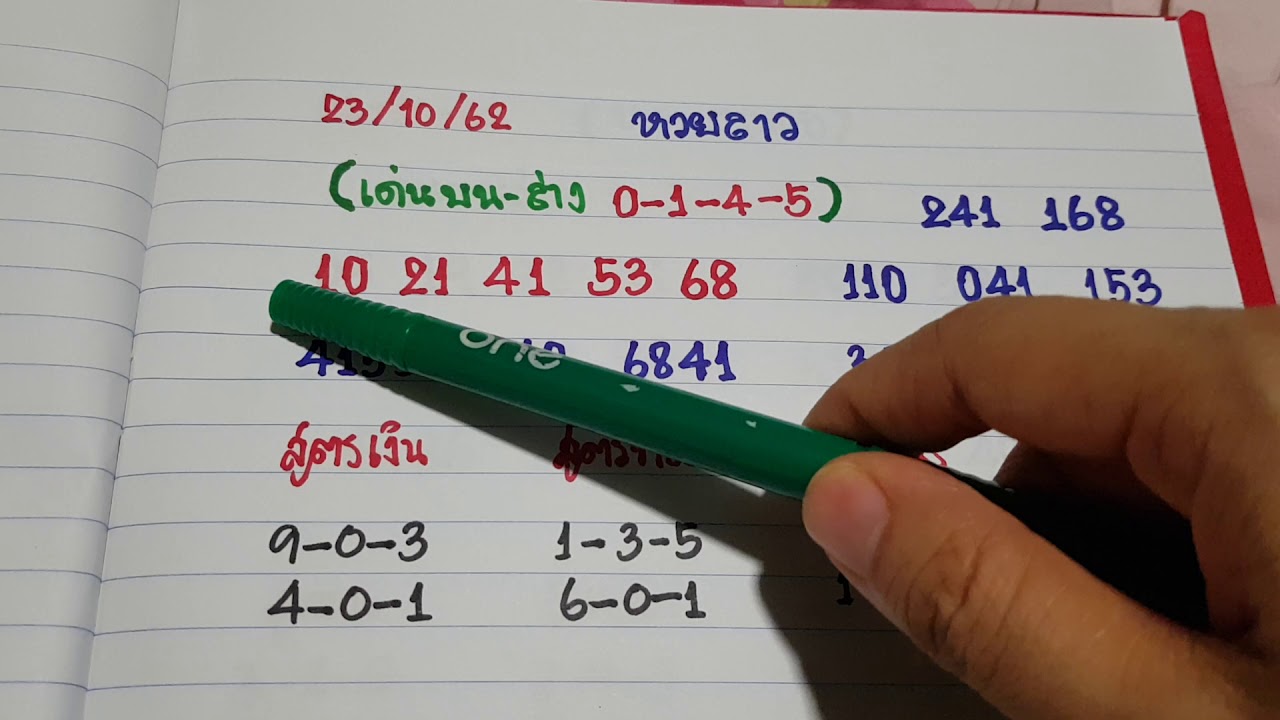 23/10/62 หวยลาว
(เด่นบน-ล่าง 0-1-4-5) 241 168
10 21 41 53 68 110 041 153
6841
one
สูตรเงิน
9-0-3 1-3-5
4-0-1 6-0-1